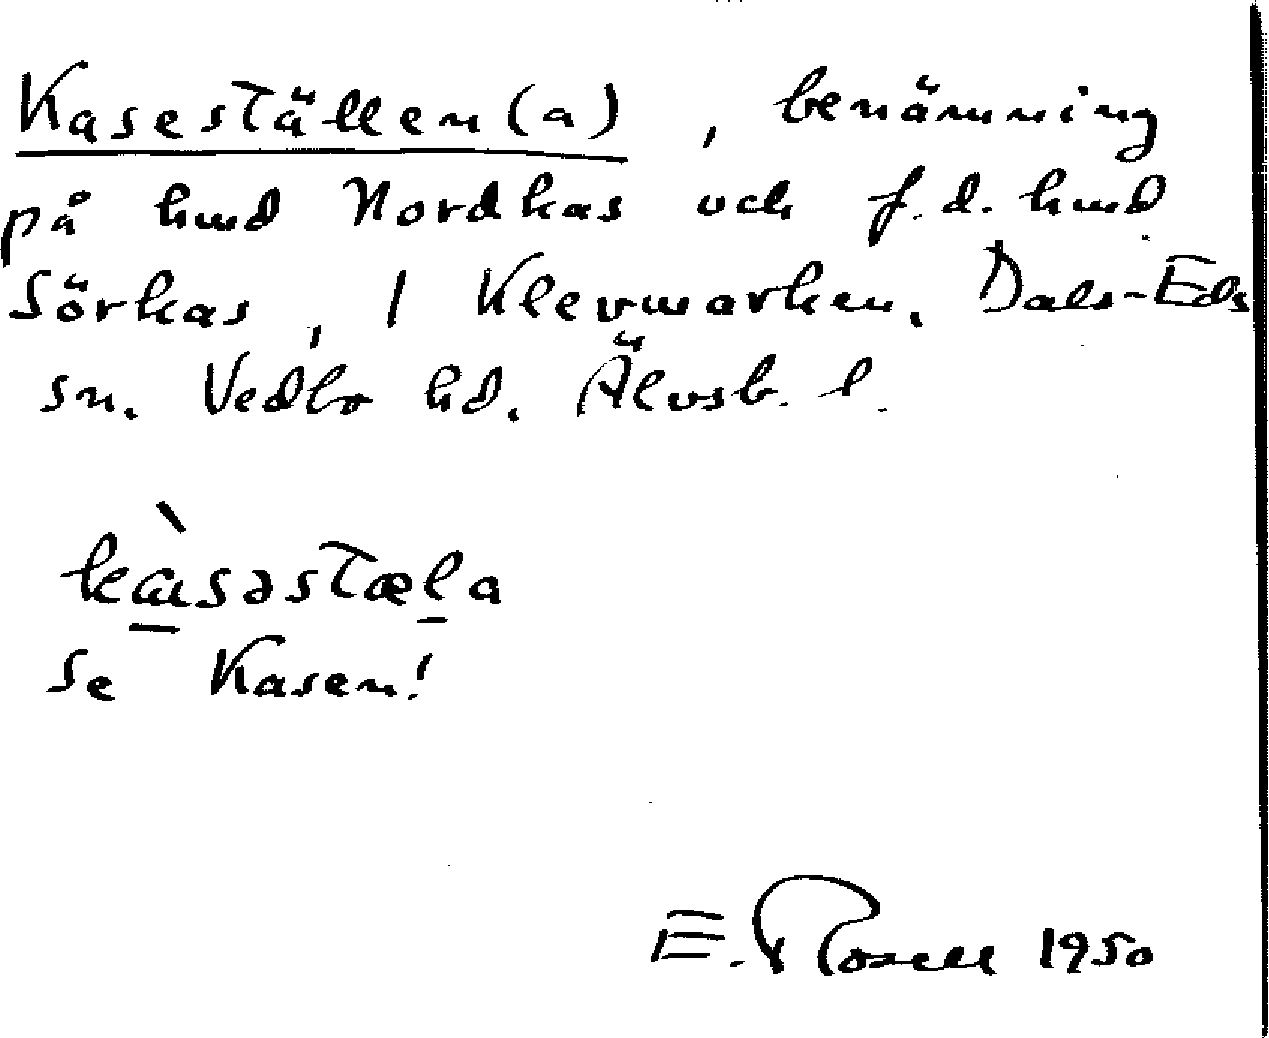 Kaseställen(a), benämning
på hmd Nordkas och f.d. hmd
Sörkas, I Klevmarken, Dals-Eds
sn. Vedbo hd. Älvsb. l.
kɑ̀səstæla
se Kasen!
E. Rosell 1950